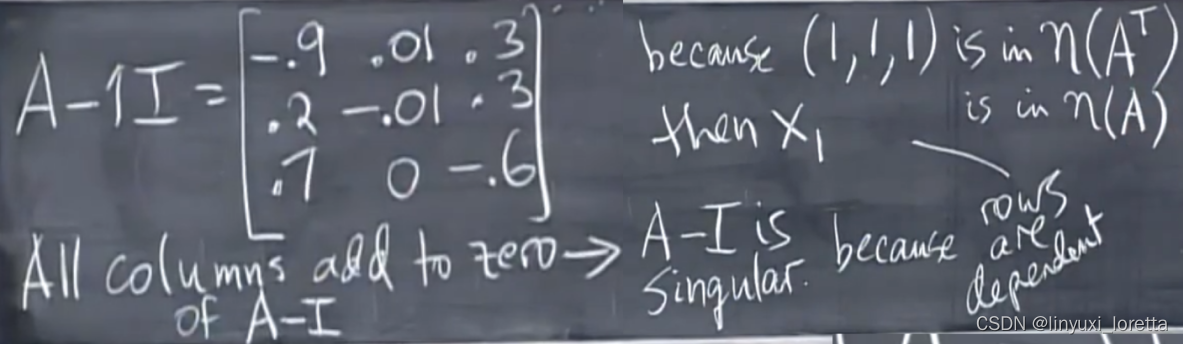 A-1I = [ -.9 .01 .3
.2 -.01 .3
.7 0 -.6 ]
All columns add to zero →
of A-I
because (1,1,1) is in N(Aᵀ)
then x₁ is in N(A)
A-I is singular. because rows are dependent
CSDN @linyuxi_loretta